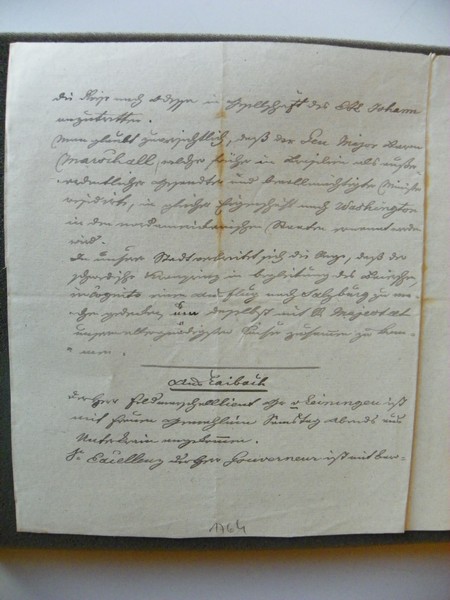 die Reise nach Odessa in Gesellschaft des EH. Johann
anzutreten.
Man glaubt zuversichtlich, daß der Gen. Major Baron
Marschall, welcher früher in Brasilien als außer
ordentlicher Gesandter und bevollmächtigter Minister
residirte, in gleicher Eigenschaft nach Washington
in den nordamerikanischen Staaten ernannt werden
wird.
In unserer Stadt verbreitet sich die Sage, daß der
schwedische Kronprinz in Begleitung des
incognito einen Ausflug nach Salzburg zu ma-
che gedenken, um daselbst mit S. Majestät
unserem allergnädigsten Kaiser zusammen zu kom-
" men.
Aus Laibach
Der Herr Feldmarschalllieut. v Leiningen ist
mit seiner Gemahlin Samstag Abends aus
Unterkrain angekommen.
Se Excellenz der Herr Gouverneur ist mit